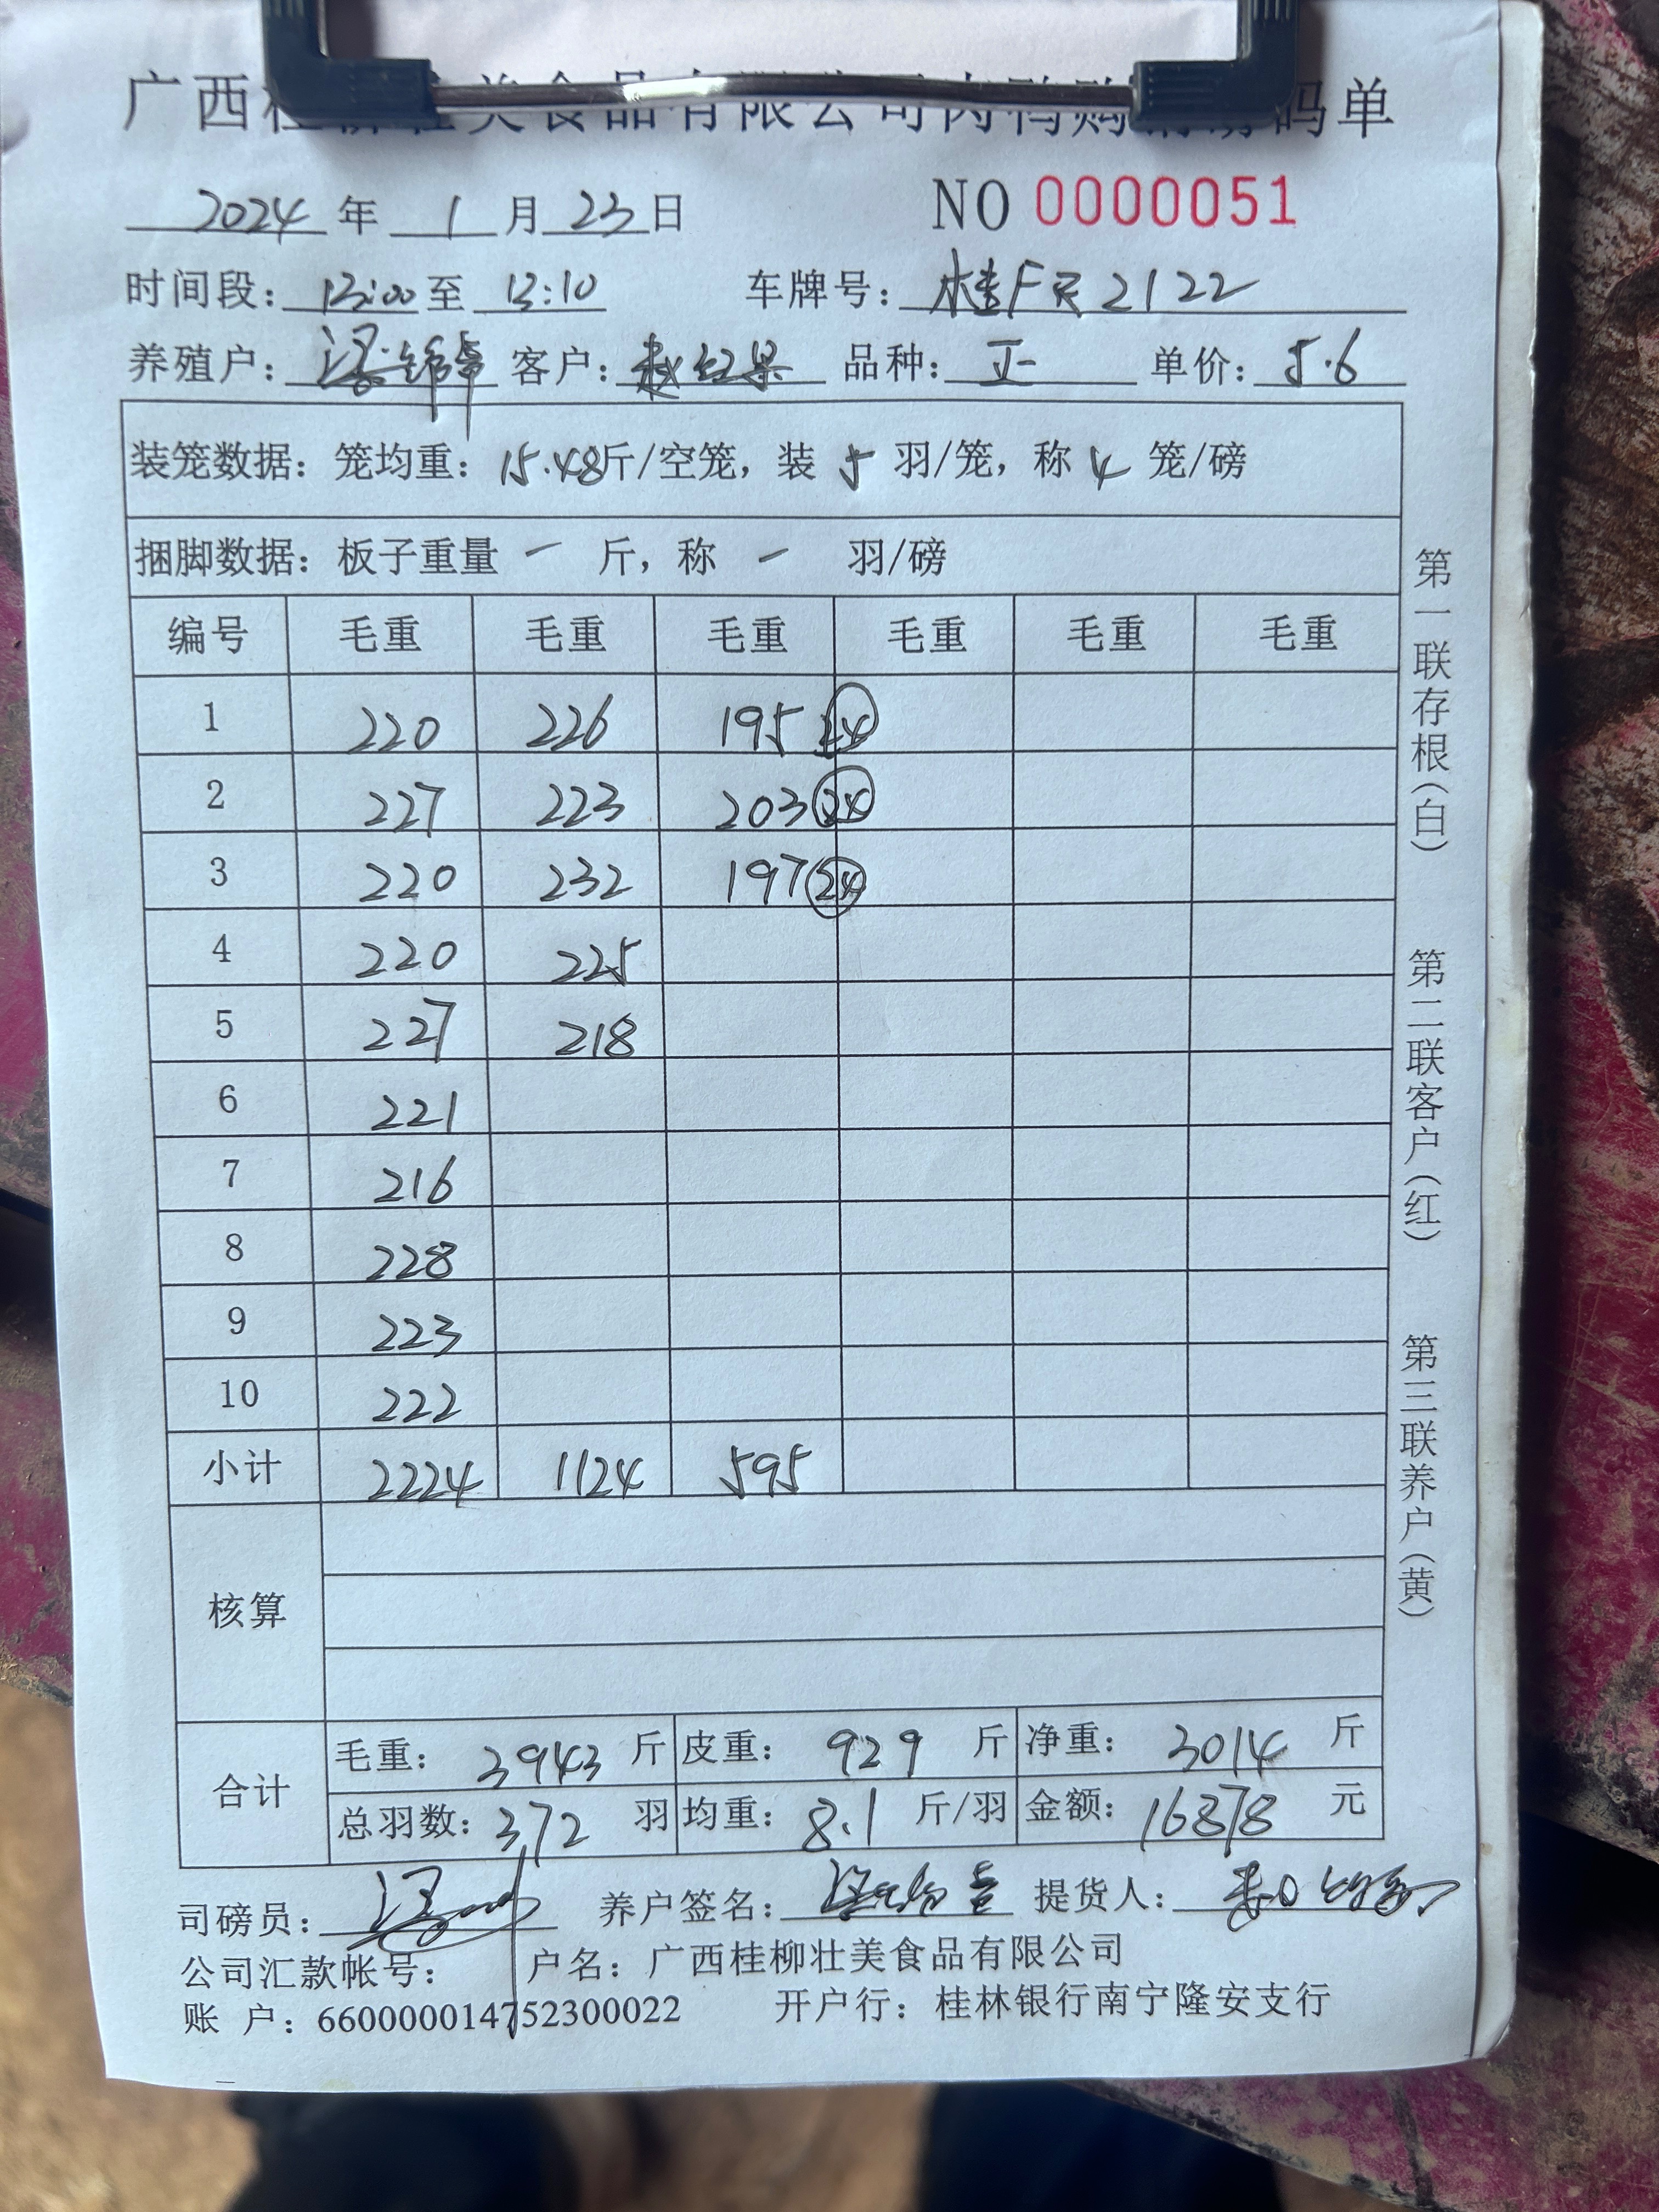 广西桂柳壮美食品有限公司肉鸭购销磅码单
2024年1月23日 NO 0000051
时间段：13:00至13:10 车牌号：桂F 2122
养殖户：梁锦 客户：赵红果 品种：正 单价：5.6
装笼数据：笼均重：15.48斤/空笼，装5羽/笼，称4笼/磅
捆脚数据：板子重量 一 斤，称 一 羽/磅
编号 毛重 毛重 毛重 毛重 毛重 毛重
1 220 226 195 24
2 227 223 203 24
3 220 232 197 24
4 220 225
5 227 218
6 221
7 216
8 228
9 223
10 222
小计 2224 1124 595
核算
合计
毛重：3943斤 皮重：929斤 净重：3014斤
总羽数：372羽 均重：8.1斤/羽 金额：16878元
司磅员： 养户签名： 提货人：
公司汇款帐号： 户名：广西桂柳壮美食品有限公司
账 户：660000014752300022 开户行：桂林银行南宁隆安支行
第一联存根（白）
第二联客户（红）
第三联养户（黄）